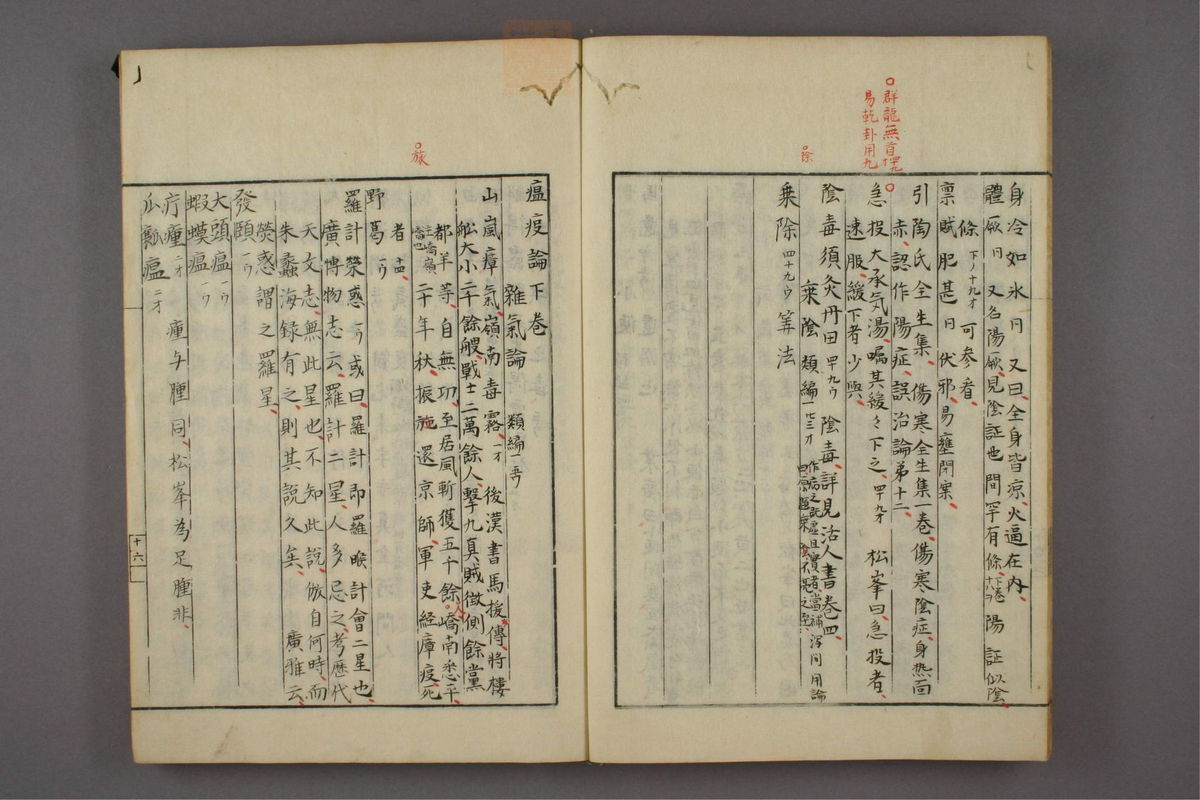 群龍無首
易乾卦用九
身冷如氷 又曰全身皆凉火逼在内
體厥 又名陽厥見陰証也間罕有條 陽証似陰
條 下ノ十九才 可参看
禀賦肥甚 伏邪易壅閉案
引陶氏全生集 傷寒全生集一巻傷寒陰症身热面
赤認作陽症誤治論第十二
急投大承气湯嘱其緩々下之 四九才 松峯曰急投者
速服緩下者少與
除
陰毒須灸丹田 四九ウ 陰毒詳見活人書巻四
乗除 四十九ウ 筭法
瘟疫論下巻
雜氣論 類編一
山嵐瘴氣嶺南毒霧 一才 後漢書馬援傳將樓
舩大小二千餘艘戰士二萬餘人擊九真賊徴側餘黨
都羊等自無功至居風斬獲五千餘嶠南悉平
旅
者 二十年秋振旅還京師軍吏経瘴疫死
野葛 一ウ
羅計熒惑 一ウ 或曰羅計即羅睺計會二星也
廣博物志云羅計二星人多忌之考歷代
天文志無此星也不知此說倣自何時而
朱蠡海録有之則其說久矣 廣雅云
熒惑謂之羅星
發頤 一ウ
大頭瘟 一ウ
蝦蟆瘟 一ウ
疔瘇 二才 瘇与腫同松峯為足腫非
瓜瓤瘟 二才
十六